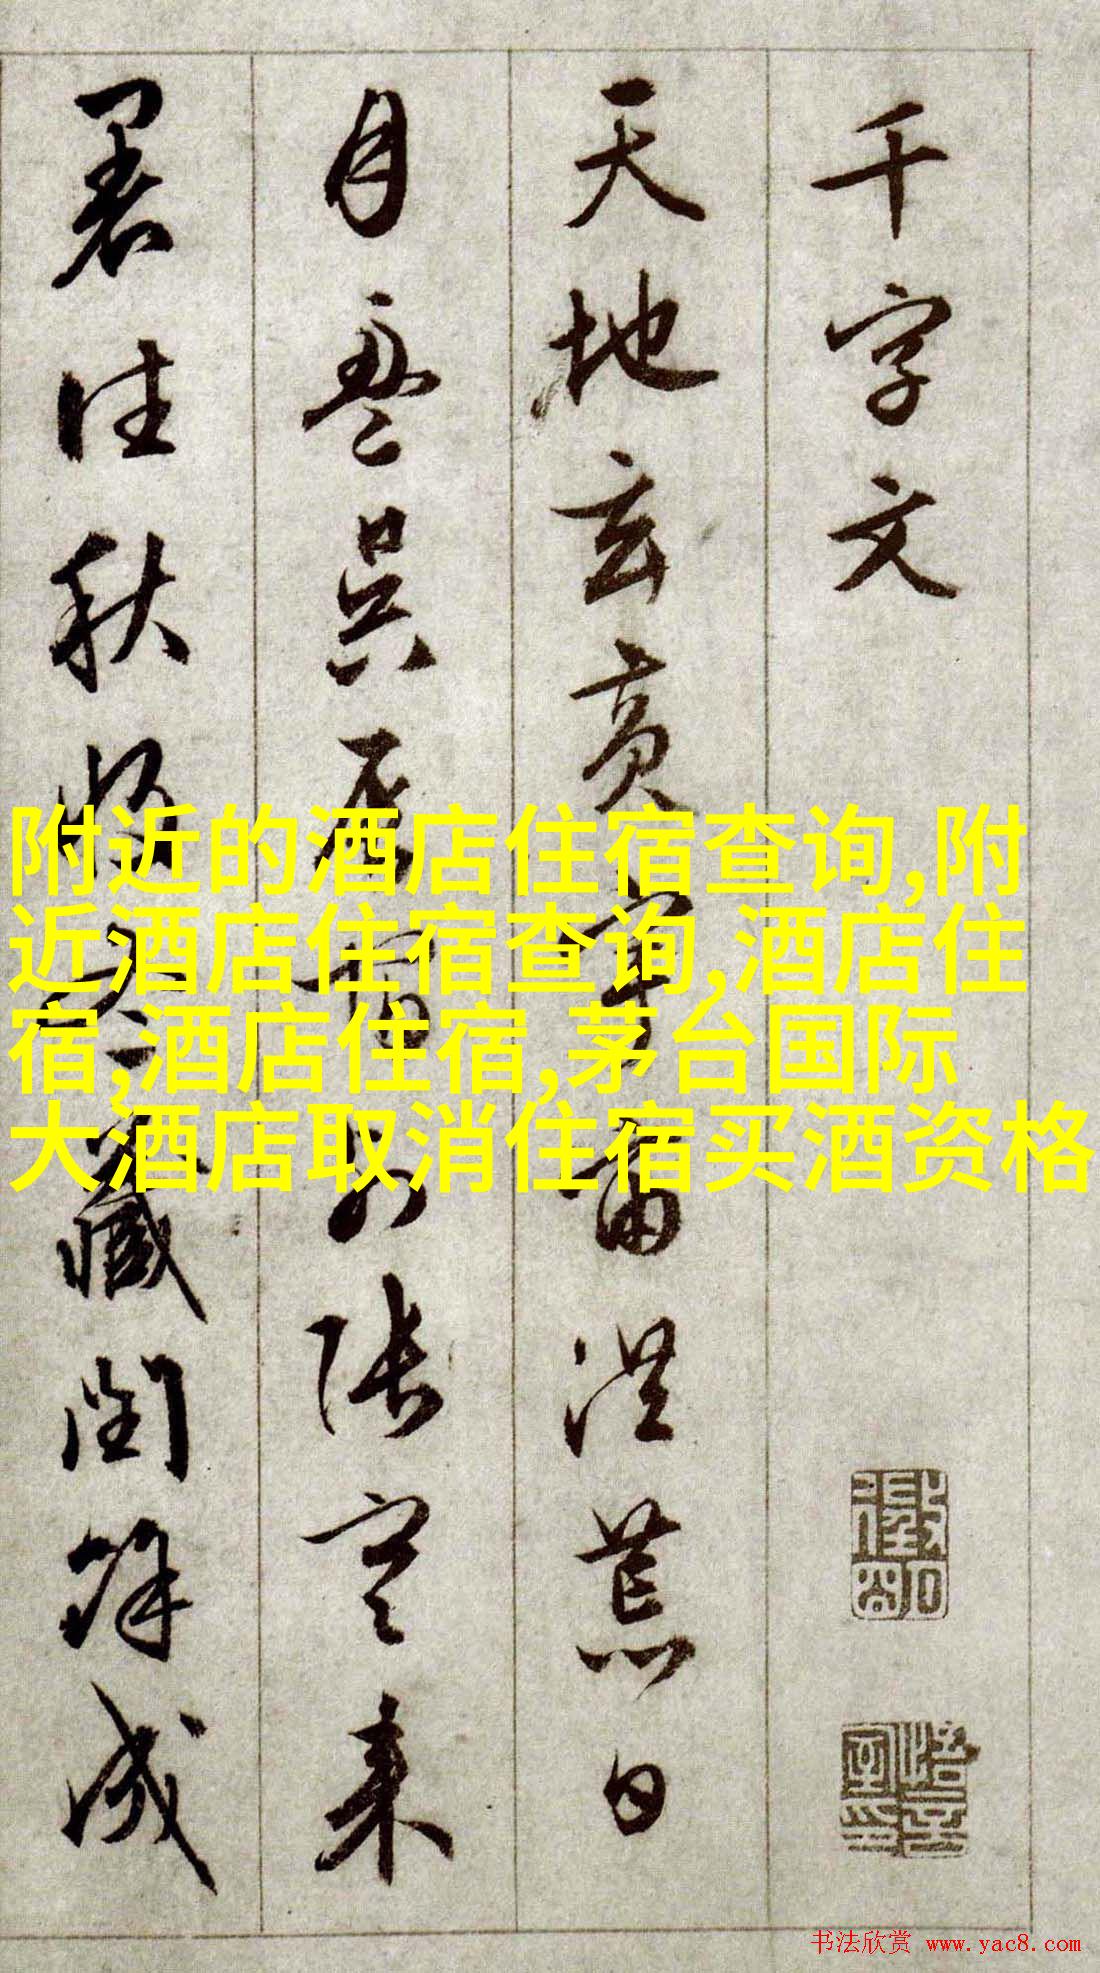 千字文
天地玄黄宇宙洪荒日
月盈昃辰宿列张寒来
暑往秋收冬藏闰余成
附近的酒店住宿查询,附
近酒店住宿查询,酒店住
宿,酒店住宿,茅台国际
大酒店取消住宿买酒资格
书法欣赏 www.yac8.com